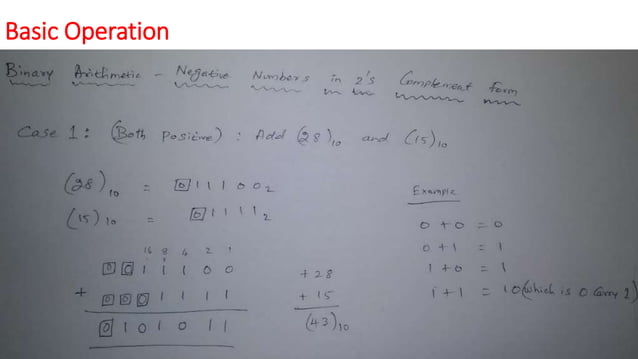 Basic Operation
Binary Arithmetic - Negative Numbers in 2's Complement form
Case 1 : (Both Positive) : Add (28)₁₀ and (15)₁₀
(28)₁₀ = 011100₂
(15)₁₀ = 01111₂
Example
0 + 0 = 0
0 + 1 = 1
1 + 0 = 1
1 + 1 = 10 (which is 0 Carry 1)
16 8 4 2 1
0 0 1 1 1 0 0
+ 0 0 0 1 1 1 1
0 1 0 1 0 1 1
+ 28
+ 15
(43)₁₀